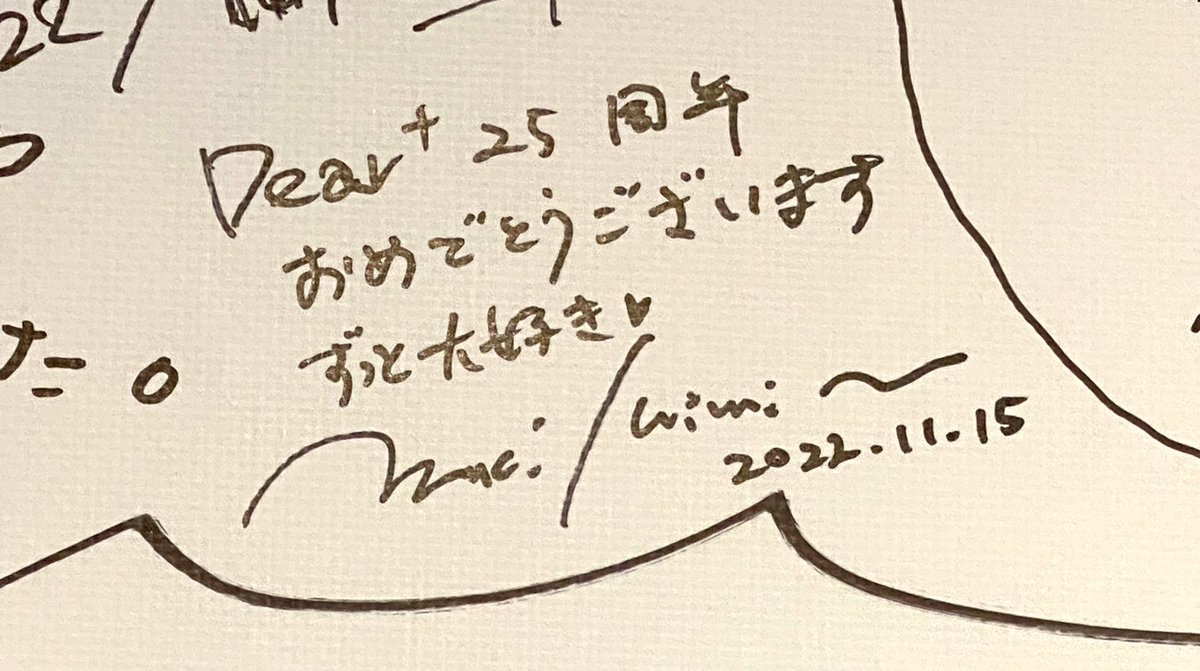 22/
Dear+ 25周年
おめでとうございます
ずっと大好き♥
2022.11.15